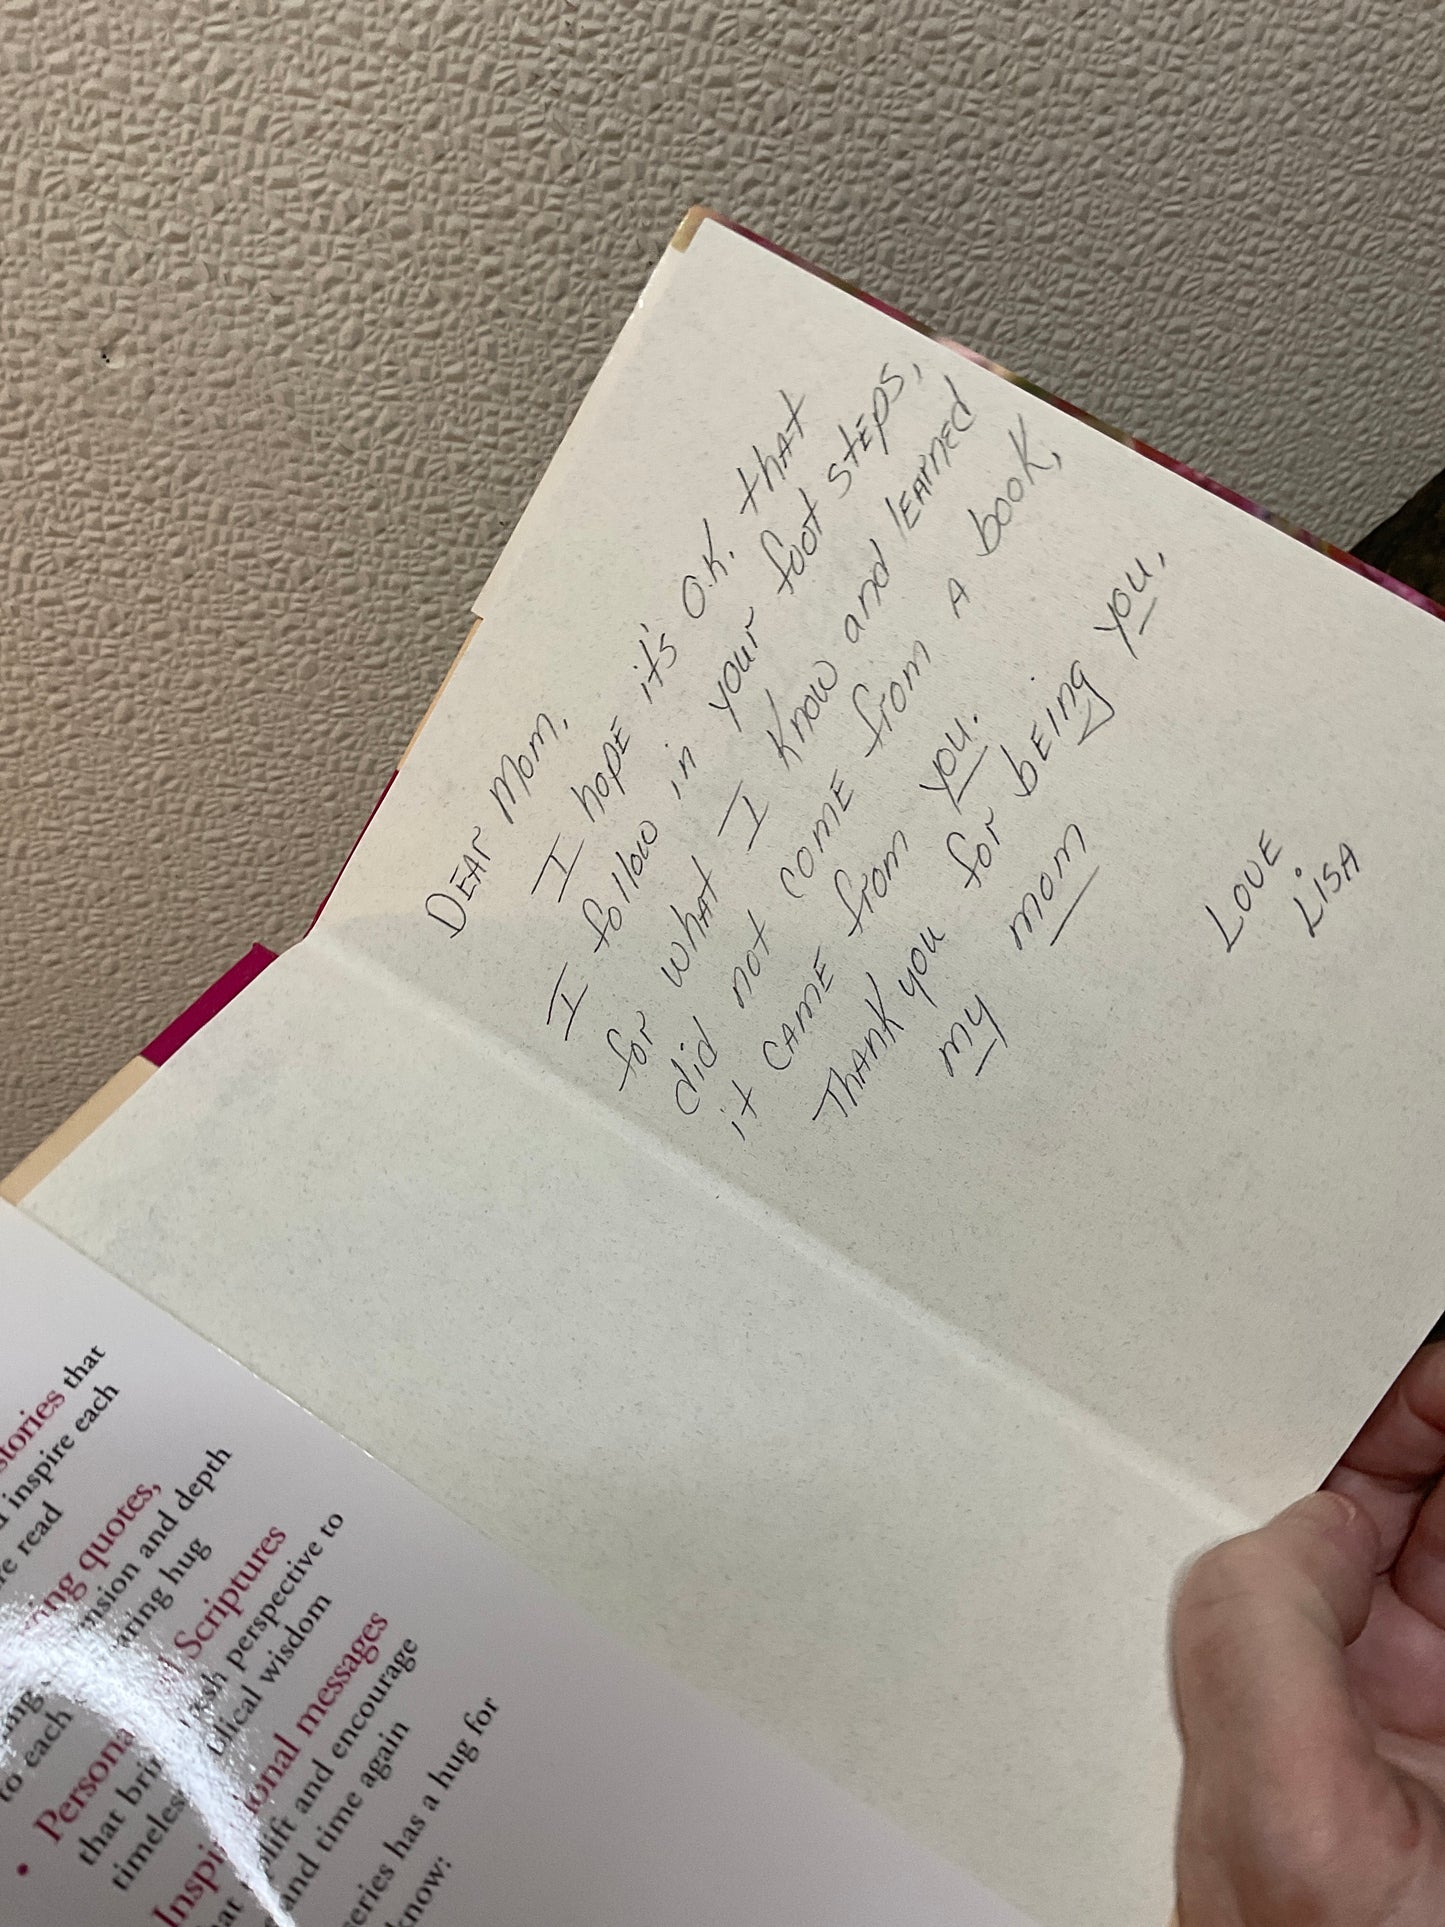 Dear Mom,
I hope it's O.K. that
I follow in your foot steps,
for what I know and learned
did not come from a book,
it came from you.
Thank you for being you,
my mom
Love
Lisa
stories that
inspire each
read
quotes,
and depth
hug
Scriptures
perspective to
to each
wisdom
• 
messages
that
lift and encourage
and time again
has a hug for
know: